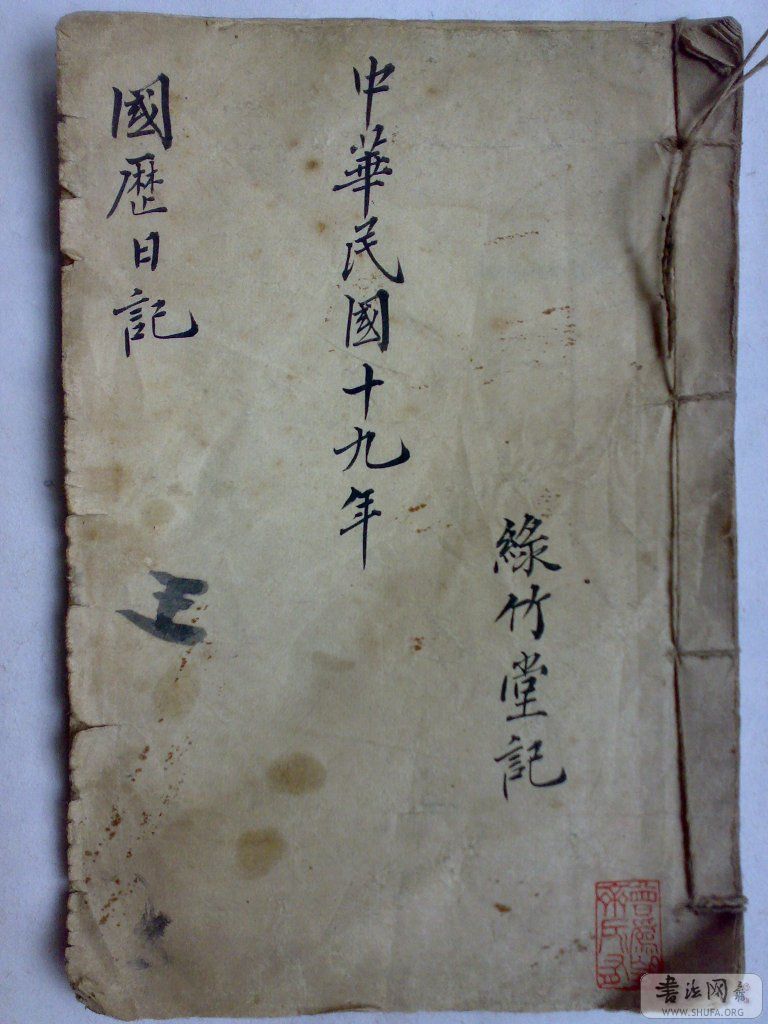 綠竹堂記
中華民國十九年
國歷日記
书法网
WWW.SHUFA.ORG